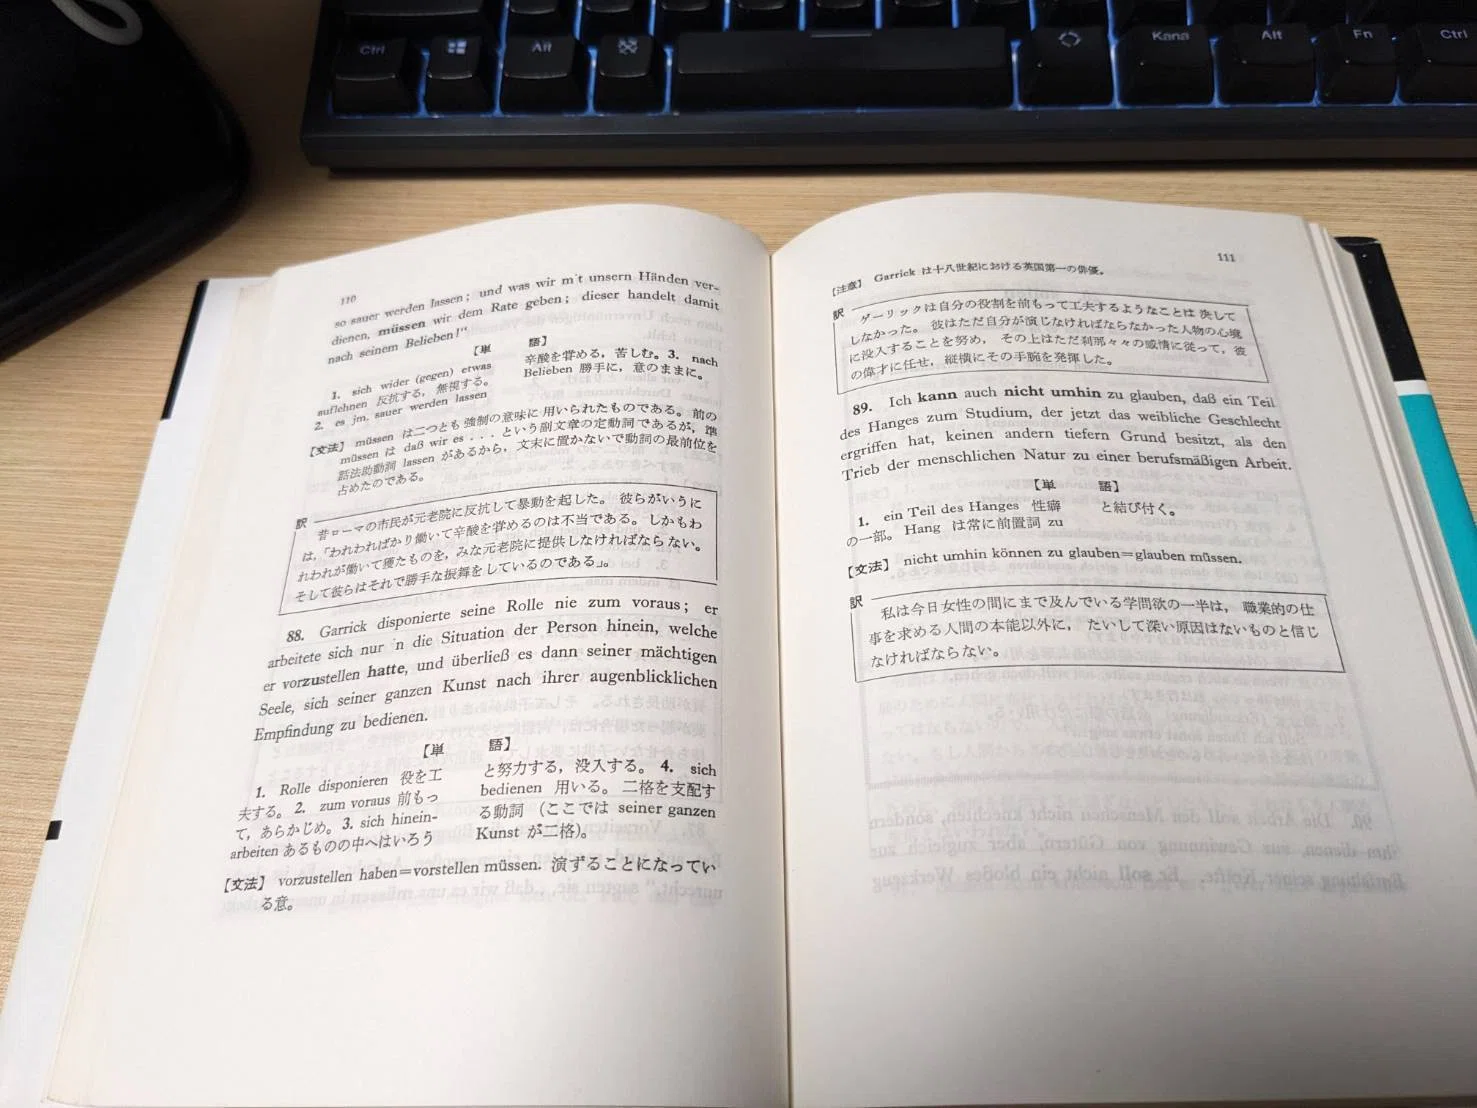 Ctrl
Alt
Kana
Alt
Fn
Ctrl
110
so sauer werden lassen; und was wir m t unsern Händen ver-
dienen, müssen wir dem Rate geben; dieser handelt damit
nach seinem Belieben!“
【単 語】
1. sich wider (gegen) etwas
auflehnen 反抗する，無視する。
2. es jm. sauer werden lassen
辛酸を甞める，苦しむ。3. nach
Belieben 勝手に，意のままに。
【文法】 müssen は二つとも 強制の意味に 用いられたものである。 前の
müssen は daß wir es . . . という副文章の定動詞であるが，準
話法助動詞 lassen があるから，文末に置かないで動詞の最前位を
占めたのである。
訳
昔ローマの市民が元老院に反抗して暴動を起した。 彼らがいうに
は，「われわればかり働いて辛酸を甞めるのは不当である。しかもわ
れわれが働いて獲たものを，みな元老院に提供しなければならない。
そして彼らはそれで勝手な振舞をしているのである」。
88. Garrick disponierte seine Rolle nie zum voraus; er
arbeitete sich nur in die Situation der Person hinein, welche
er vorzustellen hatte, und überließ es dann seiner mächtigen
Seele, sich seiner ganzen Kunst nach ihrer augenblicklichen
Empfindung zu bedienen.
【単 語】
1. Rolle disponieren 役を工
夫する。2. zum voraus 前もっ
て，あらかじめ。3. sich hinein-
arbeiten あるものの中へはいろう
と努力する，没入する。 4. sich
bedienen 用いる。 二格を支配す
る動詞 （ここでは seiner ganzen
Kunst が二格）。
【文法】 vorzustellen haben=vorstellen müssen. 演ずることになってい
る意。
111
【注意】 Garrick は十八世紀における英国第一の俳優。
訳
ゲーリックは自分の役割を前もって工夫するようなことは 決して
しなかった。 彼はただ自分が演じなければならなかった人物の心境
に没入することを努め， その上はただ刹那々々の感情に従って，彼
の偉才に任せ，縦横にその手腕を発揮した。
89. Ich kann auch nicht umhin zu glauben, daß ein Teil
des Hanges zum Studium, der jetzt das weibliche Geschlecht
ergriffen hat, keinen andern tiefern Grund besitzt, als den
Trieb der menschlichen Natur zu einer berufsmäßigen Arbeit.
【単 語】
1. ein Teil des Hanges 性癖
の一部。 Hang は常に前置詞 zu
と結び付く。
【文法】 nicht umhin können zu glauben=glauben müssen.
訳
私は今日女性の間にまで及んでいる学問欲の一半は， 職業的の仕
事を求める人間の本能以外に， たいして深い原因はないものと信じ
なければならない。